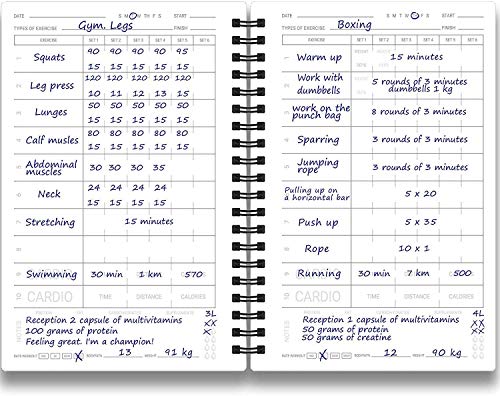 DATE S M T W T F S START
TYPES OF EXERCISE Gym. Legs FINISH
EXERCISE SET 1 SET 2 SET 3 SET 4 SET 5 SET 6
1 Squats 90 90 90 90 95
15 15 15 15 15
2 Leg press 120 120 120 120 120
10 11 12 13 15
3 Lunges 50 50 50 50 50
15 15 15 15 15
4 Calf musles 80 80 80 80 80
15 15 15 15 15
5 Abdominal muscles 30 30 30 35
6 Neck 24 24 24
15 15 15
7 Stretching 15 minutes
8
9 Swimming 30 min 1 km 570
10 CARDIO TIME DISTANCE CALORIES
NOTES
Reception 2 capsule of multivitamins 3L
100 grams of protein XX
Feeling great. I'm a champion! X
RATE WORKOUT X BODYFAT% 13 WEIGHT 91 kg
DATE S M T W T F S START
TYPES OF EXERCISE Boxing FINISH
EXERCISE SET 1 SET 2 SET 3 SET 4 SET 5 SET 6
1 Warm up 15 minutes
2 Work with dumbbells 5 rounds of 3 minutes
dumbbells 1 kg
3 work on the punch bag 8 rounds of 3 minutes
4 Sparring 3 rounds of 3 minutes
5 Jumping rope 3 rounds of 3 minutes
Pulling up on a horizontal bar 5 x 20
7 Push up 5 x 35
8 Rope 10 x 1
9 Running 30 min 7 km 500
10 CARDIO TIME DISTANCE CALORIES
NOTES
Reception 1 capsule of multivitamins 4L
50 grams of protein XX
50 grams of creatine XX
RATE WORKOUT X BODYFAT% 12 WEIGHT 90 kg